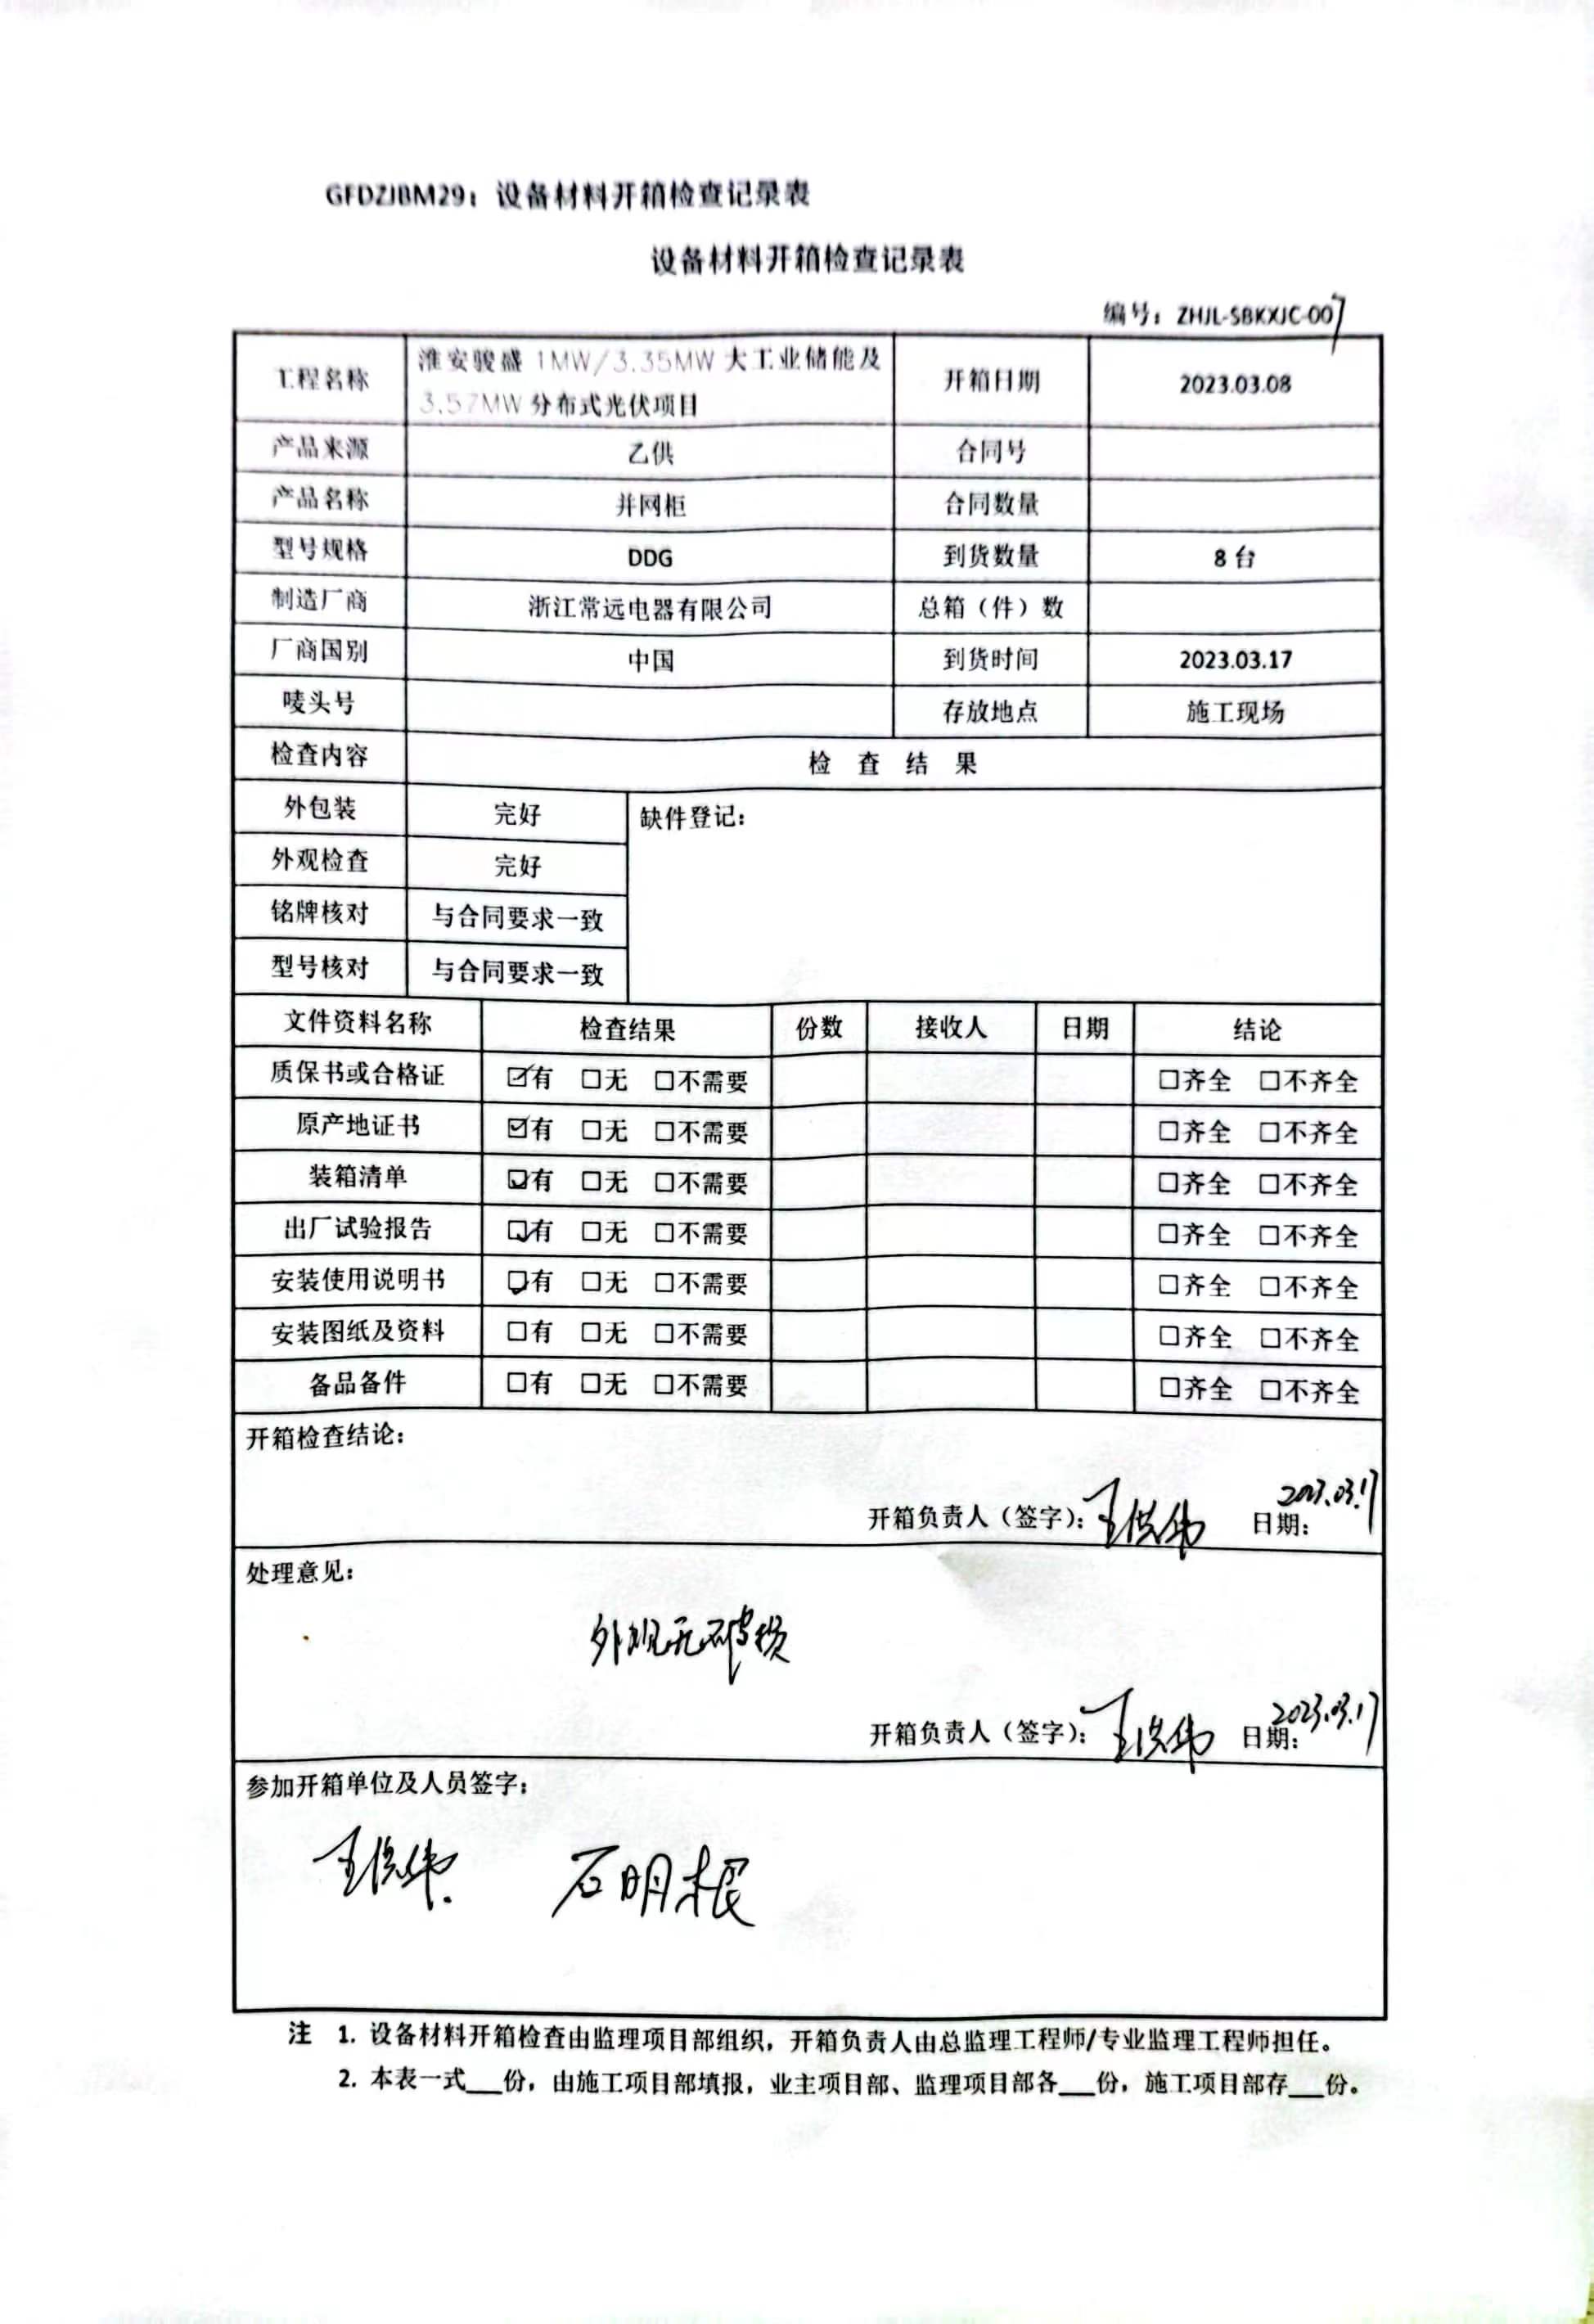 GFDZJBM29：设备材料开箱检查记录表
设备材料开箱检查记录表
编号：ZHJL-SBKXJC-007
工程名称 淮安骏盛 1MW/3.35MW 大工业储能及 3.57MW 分布式光伏项目 开箱日期 2023.03.08
产品来源 乙供 合同号
产品名称 并网柜 合同数量
型号规格 DDG 到货数量 8 台
制造厂商 浙江常远电器有限公司 总箱（件）数
厂商国别 中国 到货时间 2023.03.17
唛头号 存放地点 施工现场
检查内容 检 查 结 果
外包装 完好 缺件登记：
外观检查 完好
铭牌核对 与合同要求一致
型号核对 与合同要求一致
文件资料名称 检查结果 份数 接收人 日期 结论
质保书或合格证 ☑有 □无 □不需要 □齐全 □不齐全
原产地证书 ☑有 □无 □不需要 □齐全 □不齐全
装箱清单 ☑有 □无 □不需要 □齐全 □不齐全
出厂试验报告 ☑有 □无 □不需要 □齐全 □不齐全
安装使用说明书 ☑有 □无 □不需要 □齐全 □不齐全
安装图纸及资料 □有 □无 □不需要 □齐全 □不齐全
备品备件 □有 □无 □不需要 □齐全 □不齐全
开箱检查结论：
开箱负责人（签字）： 日期： 2023.03.17
处理意见：
外观无破损
开箱负责人（签字）： 日期： 2023.03.17
参加开箱单位及人员签字：
石明根
注 1. 设备材料开箱检查由监理项目部组织，开箱负责人由总监理工程师/专业监理工程师担任。
2. 本表一式___份，由施工项目部填报，业主项目部、监理项目部各___份，施工项目部存___份。